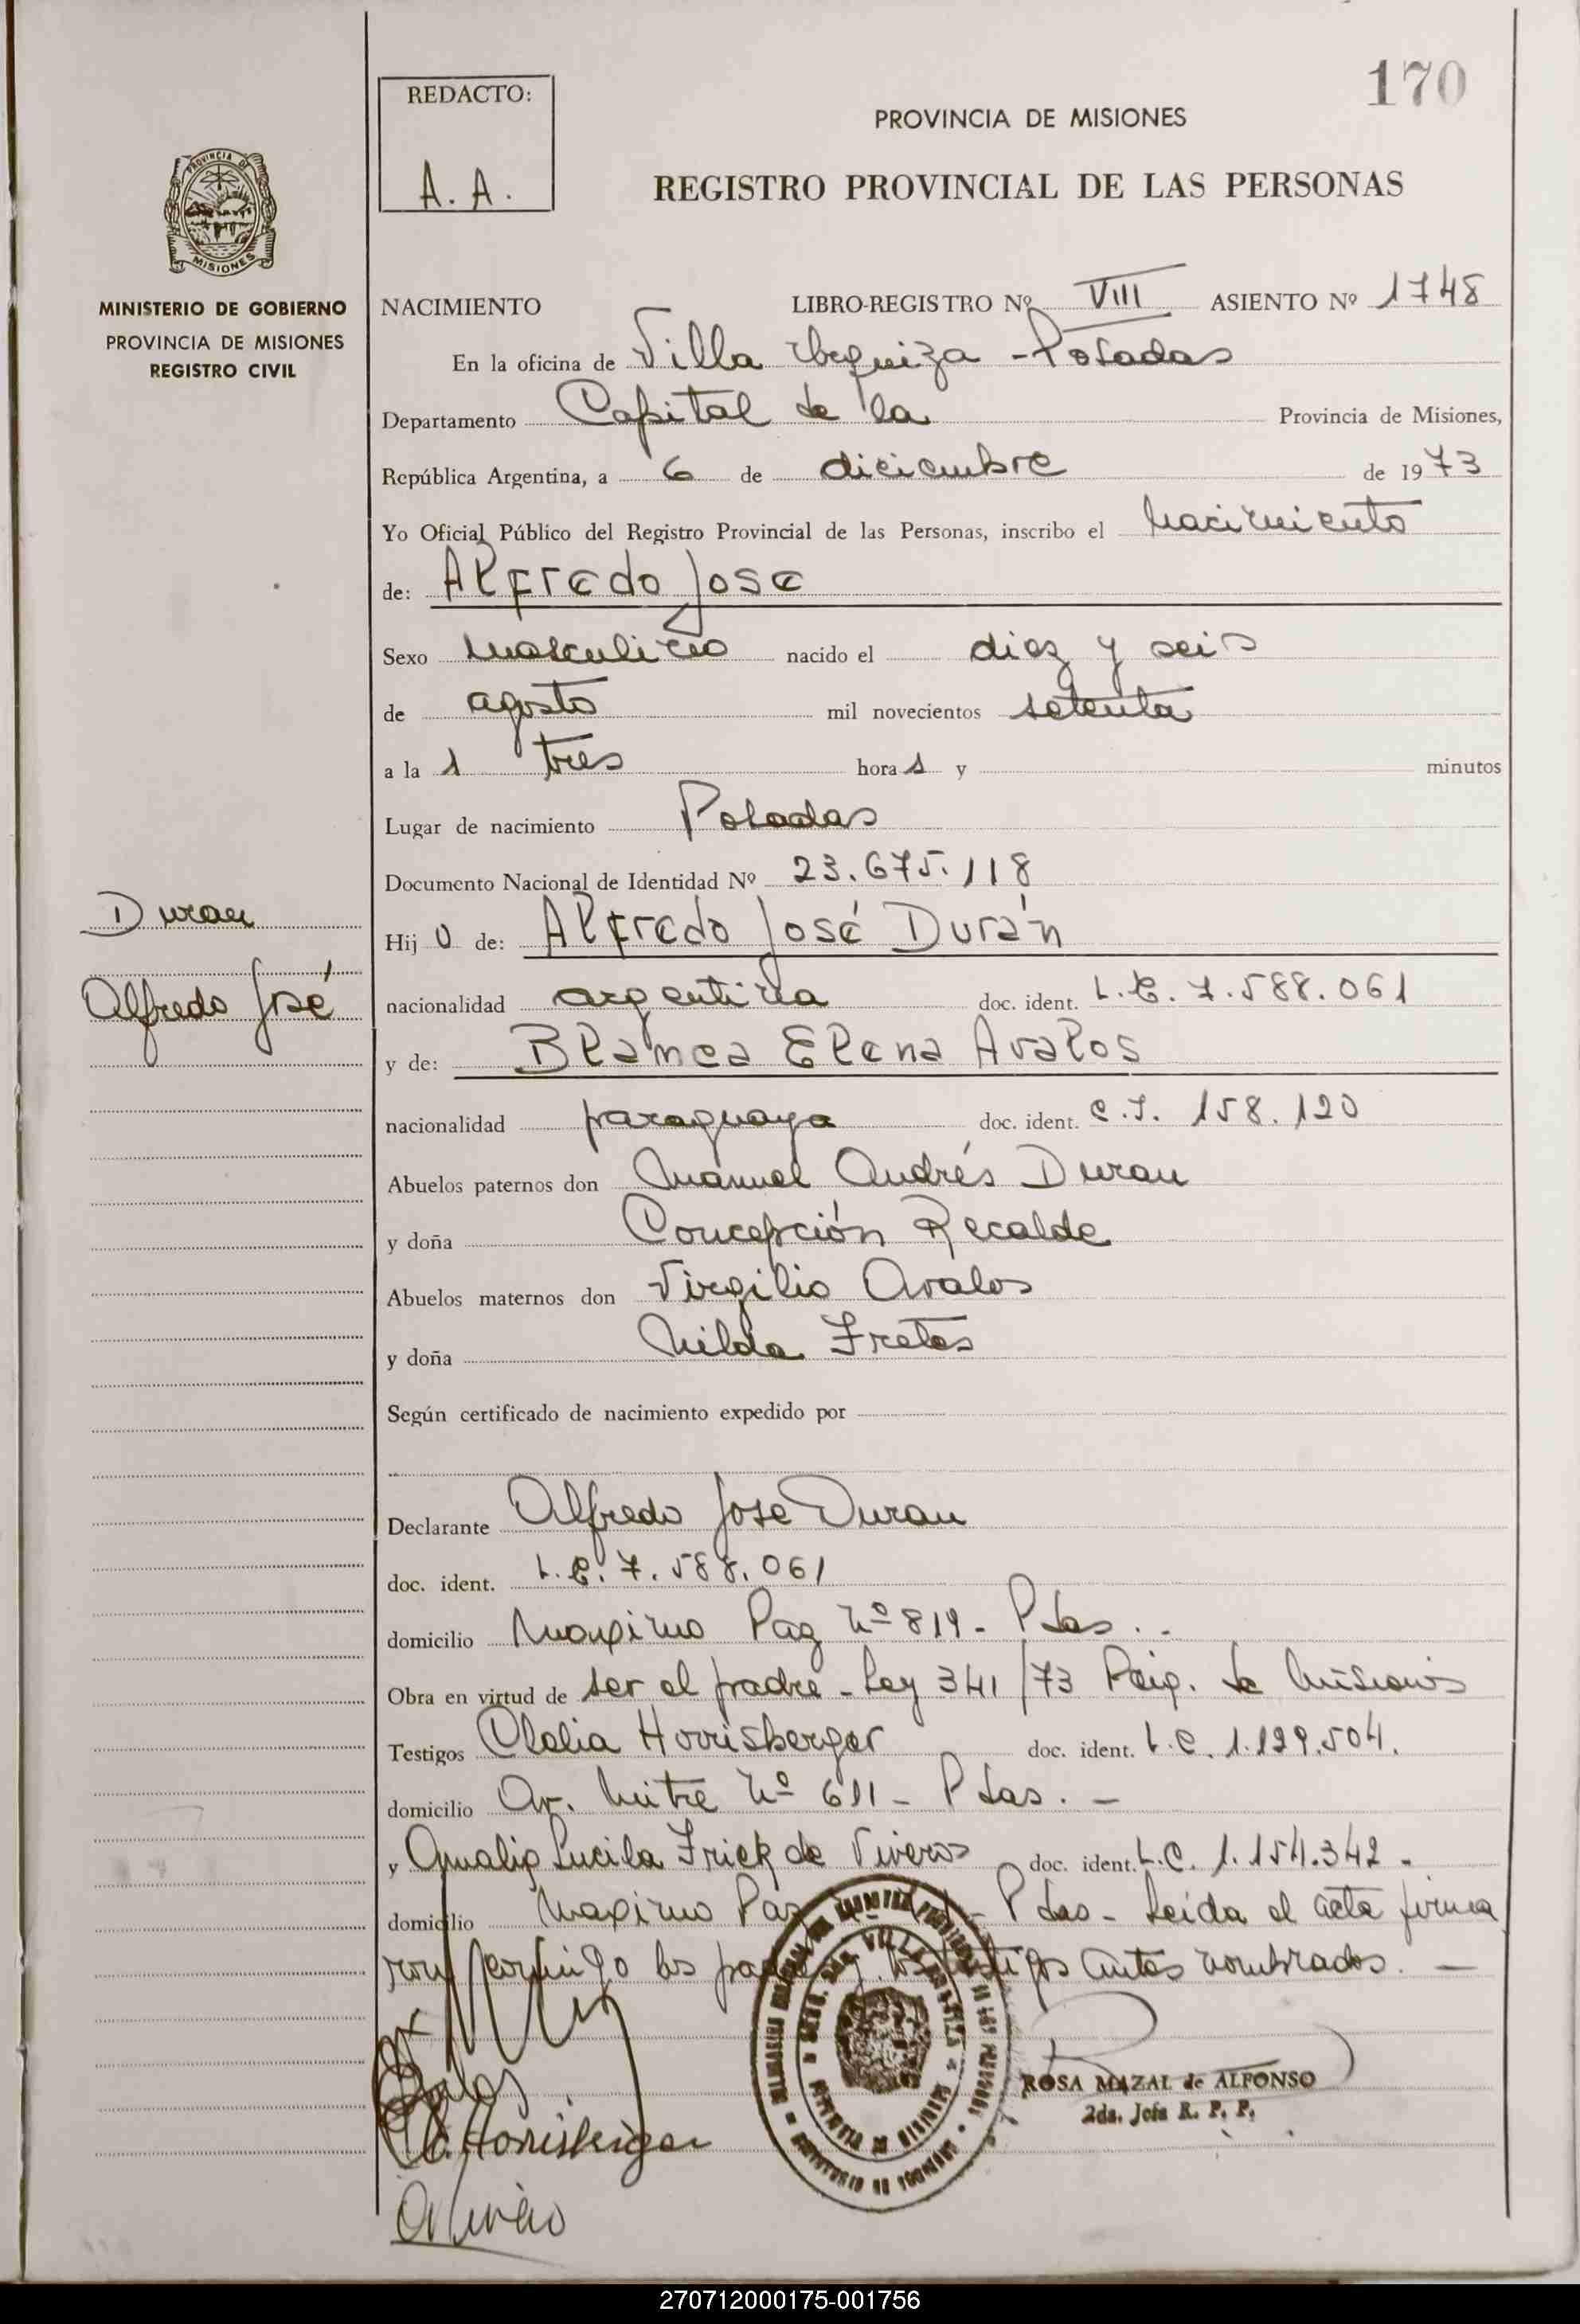 170
REDACTO:
A. A.
PROVINCIA DE MISIONES
REGISTRO PROVINCIAL DE LAS PERSONAS
PROVINCIA DE
MISIONES
MINISTERIO DE GOBIERNO
PROVINCIA DE MISIONES
REGISTRO CIVIL
NACIMIENTO LIBRO-REGISTRO Nº VIII ASIENTO Nº 1748
En la oficina de Villa Urquiza - Posadas
Departamento Capital de la Provincia de Misiones,
República Argentina, a 6 de diciembre de 1973
Yo Oficial Público del Registro Provincial de las Personas, inscribo el nacimiento
de: Alfredo Jose
Sexo masculino nacido el diez y seis
de agosto mil novecientos setenta
a la s tres hora s y minutos
Lugar de nacimiento Posadas
Documento Nacional de Identidad Nº 23.675.118
Duran
Hij o de: Alfredo José Durán
Alfredo José
nacionalidad argentina doc. ident. L.E. 7.588.061
y de: Blanca Elena Avalos
nacionalidad paraguaya doc. ident. C.I. 158.120
Abuelos paternos don Manuel Andrés Duran
y doña Concepción Recalde
Abuelos maternos don Virgilio Avalos
y doña Nilda Fretes
Según certificado de nacimiento expedido por
Declarante Alfredo Jose Duran
doc. ident. L.E. 7.588.061
domicilio Maximo Paz Nº 819 - Pdas. -
Obra en virtud de ser el padre - Ley 341/73 de Misiones
Testigos Clelia Horrisberger doc. ident. L.C. 1.129.504.
domicilio Av. Mitre Nº 611 - Pdas. -
y Amalia Lucila Frick de Viveros doc. ident. L.C. 1.154.342 -
domicilio Maximo Paz - Pdas - Leida el acta firma
ron conmigo los padres y los testigos antes nombrados. -
C. Horrisberger
ROSA MAZAL de ALFONSO
2da. Jefa R. P. P.
270712000175-001756